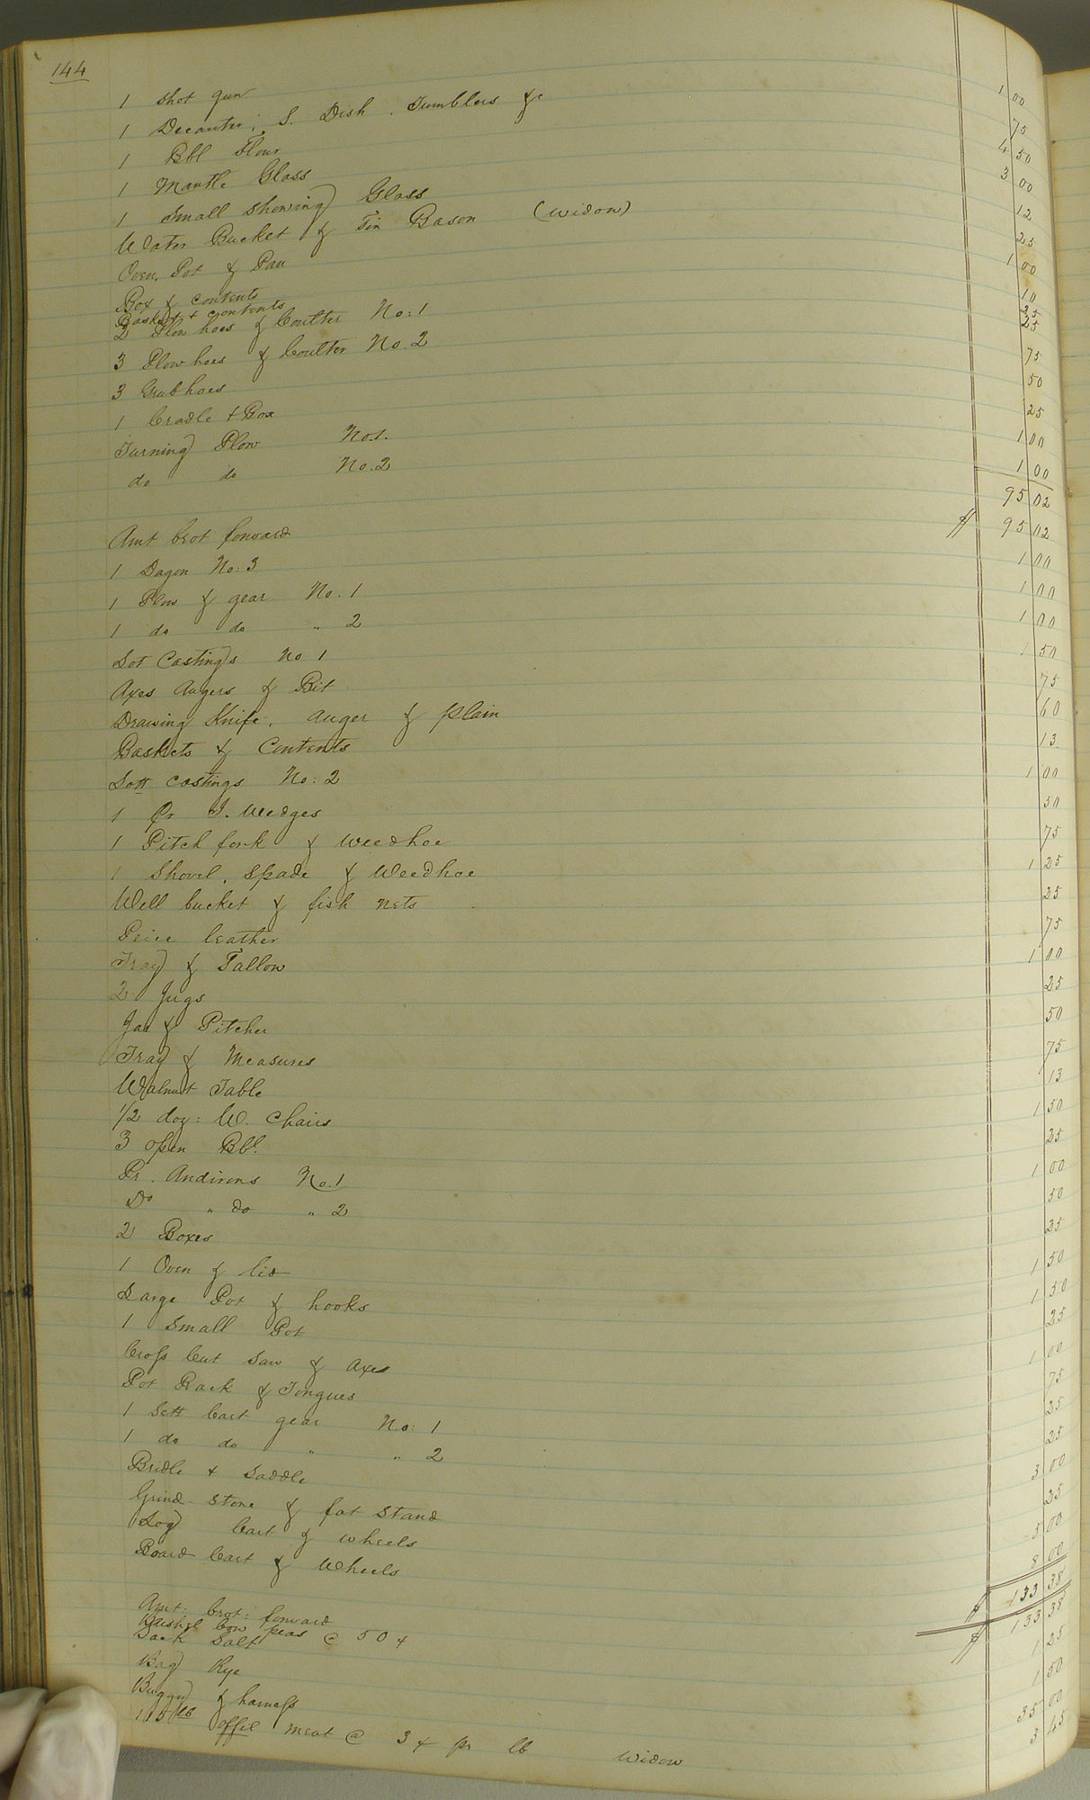 144
1 Shot gun 1 00
1 Decanter, S. Dish, Tumblers &c 75
1 Bbl Flour 4 50
1 Mantle Glass 3 00
1 Small Shewing Glass 12
Water Bucket & Tin Bason (Widow) 25
Oven, Pot & Pan 1 00
Box & contents 10
Basket + contents 25
2 Plow hoes & Coulter No: 1 25
3 Plow hoes & Coulter No 2 75
3 Grub hoes 50
1 Cradle + Box 25
Turning Plow No 1. 1 00
do do No. 2 1 00
95 02
Amt brot forward $ 95 02
1 Dagon No: 3 1 00
1 Plow & gear No. 1 1 00
1 do do " 2 1 00
Lot Castings No 1 1 50
Axes Augers & Bit 75
Drawing Knife, auger & plain 60
Baskets & Contents 13
Lott castings No: 2 1 00
1 Pr I. Wedges 50
1 Pitch fork & weedhoe 75
1 Shovel, Spade & Weedhoe 1 25
Well bucket & fish nets 25
Peice leather 75
Tray & Tallow 1 00
2 Jugs 25
Jar & Pitcher 50
Tray & Measures 75
Walnut Table 13
1/2 doz: W. Chairs 1 50
3 open Bbl. 25
Pr. Andirons No. 1 1 00
Do " do " 2 50
2 Boxes 25
1 Oven & lid 1 50
Large Pot & hooks 1 50
1 Small Pot 25
Cross Cut Saw & Axes 1 00
Pot Rack & Tongues 75
1 Sett Cart gear No: 1 25
1 do do " " 2 25
Bridle + Saddle 3 00
Grind stone & fat Stand 25
Log Cart & wheels 5 00
Board Cart & Wheels 8 00
$ 133 38
Amt: brot: forward $ 133 38
Bushel Cow peas @ 50 ¢
Sack Salt 1 25
Bag Rye 1 50
Buggy & harness 35 00
115 lb offil meat @ 3 ¢ pr lb Widow 3 45